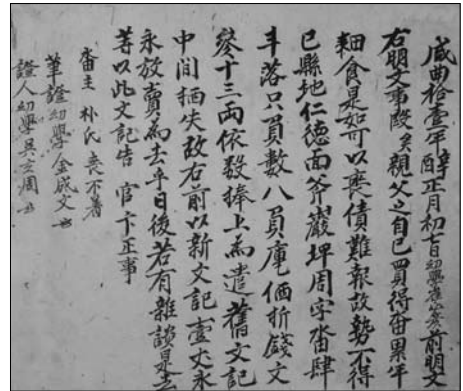 咸豊拾壹年辛酉正月初七日幼學崔宗岌前明文
右明文事段矣親父主自己買得畓累年
耕食是如可以喪債難報故勢不得
已縣地仁德面斧巖坪周字畓肆
斗落只負數八負庫価折錢文
參十三兩依數捧上爲遣舊文記
中間牰失故右前以新文記壹丈永
永放賣爲去乎日後若有雜談是去
等以此文記告 官卞正事
畓主 朴氏 喪不着
筆證幼學金成文
證人幼學吳玄周